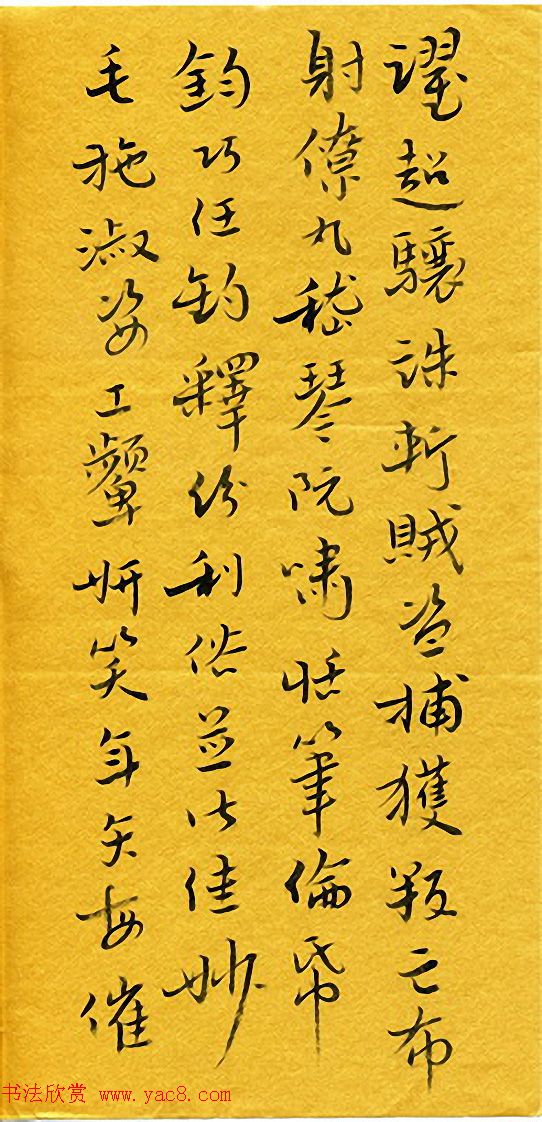 躍超驤誅斬賊盜捕獲叛亡布
射僚丸嵇琴阮嘯恬筆倫帋
鈞巧任釣釋紛利俗並皆佳妙
毛施淑姿工顰妍笑年矢每催
书法欣赏 www.yac8.com